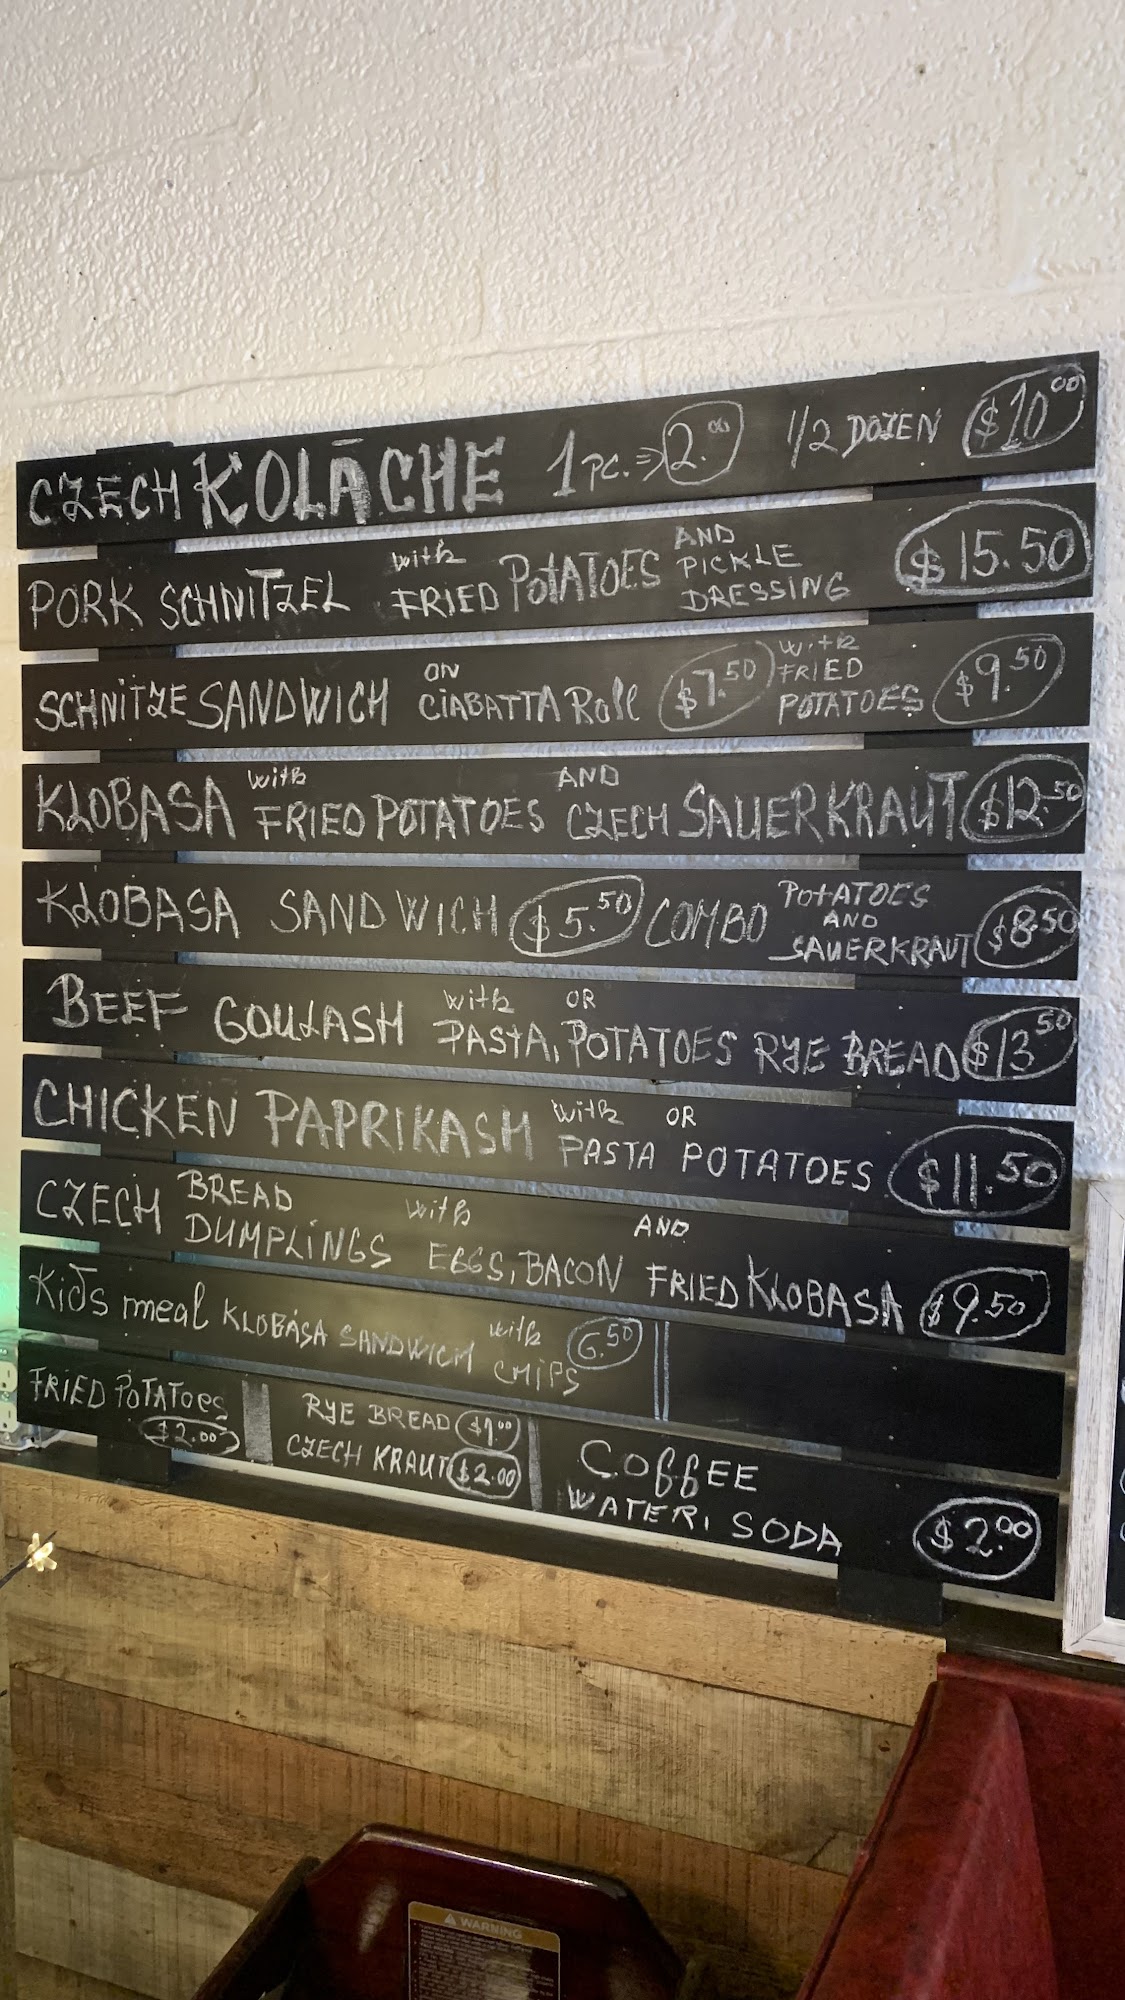 CZECH KOLĀCHE 1 PC. ⇒ 2.00 1/2 DOZEN $10.00
PORK SCHNITZEL with FRIED POTATOES AND PICKLE DRESSING $15.50
SCHNITZE SANDWICH ON CIABATTA Roll $7.50 with FRIED POTATOES $9.50
KLOBASA with FRIED POTATOES AND CZECH SAUERKRAUT $12.50
KLOBASA SANDWICH $5.50 COMBO POTATOES AND SAUERKRAUT $8.50
BEEF GOULASH with PASTA, OR POTATOES RYE BREAD $13.50
CHICKEN PAPRIKASH with PASTA OR POTATOES $11.50
CZECH BREAD DUMPLINGS with EGGS, BACON AND FRIED KLOBASA $9.50
Kids meal KLOBASA SANDWICH with CHIPS 6.50
FRIED POTATOES $2.00
RYE BREAD $1.00
CZECH KRAUT $2.00
COFFEE
WATER, SODA $2.00
WARNING